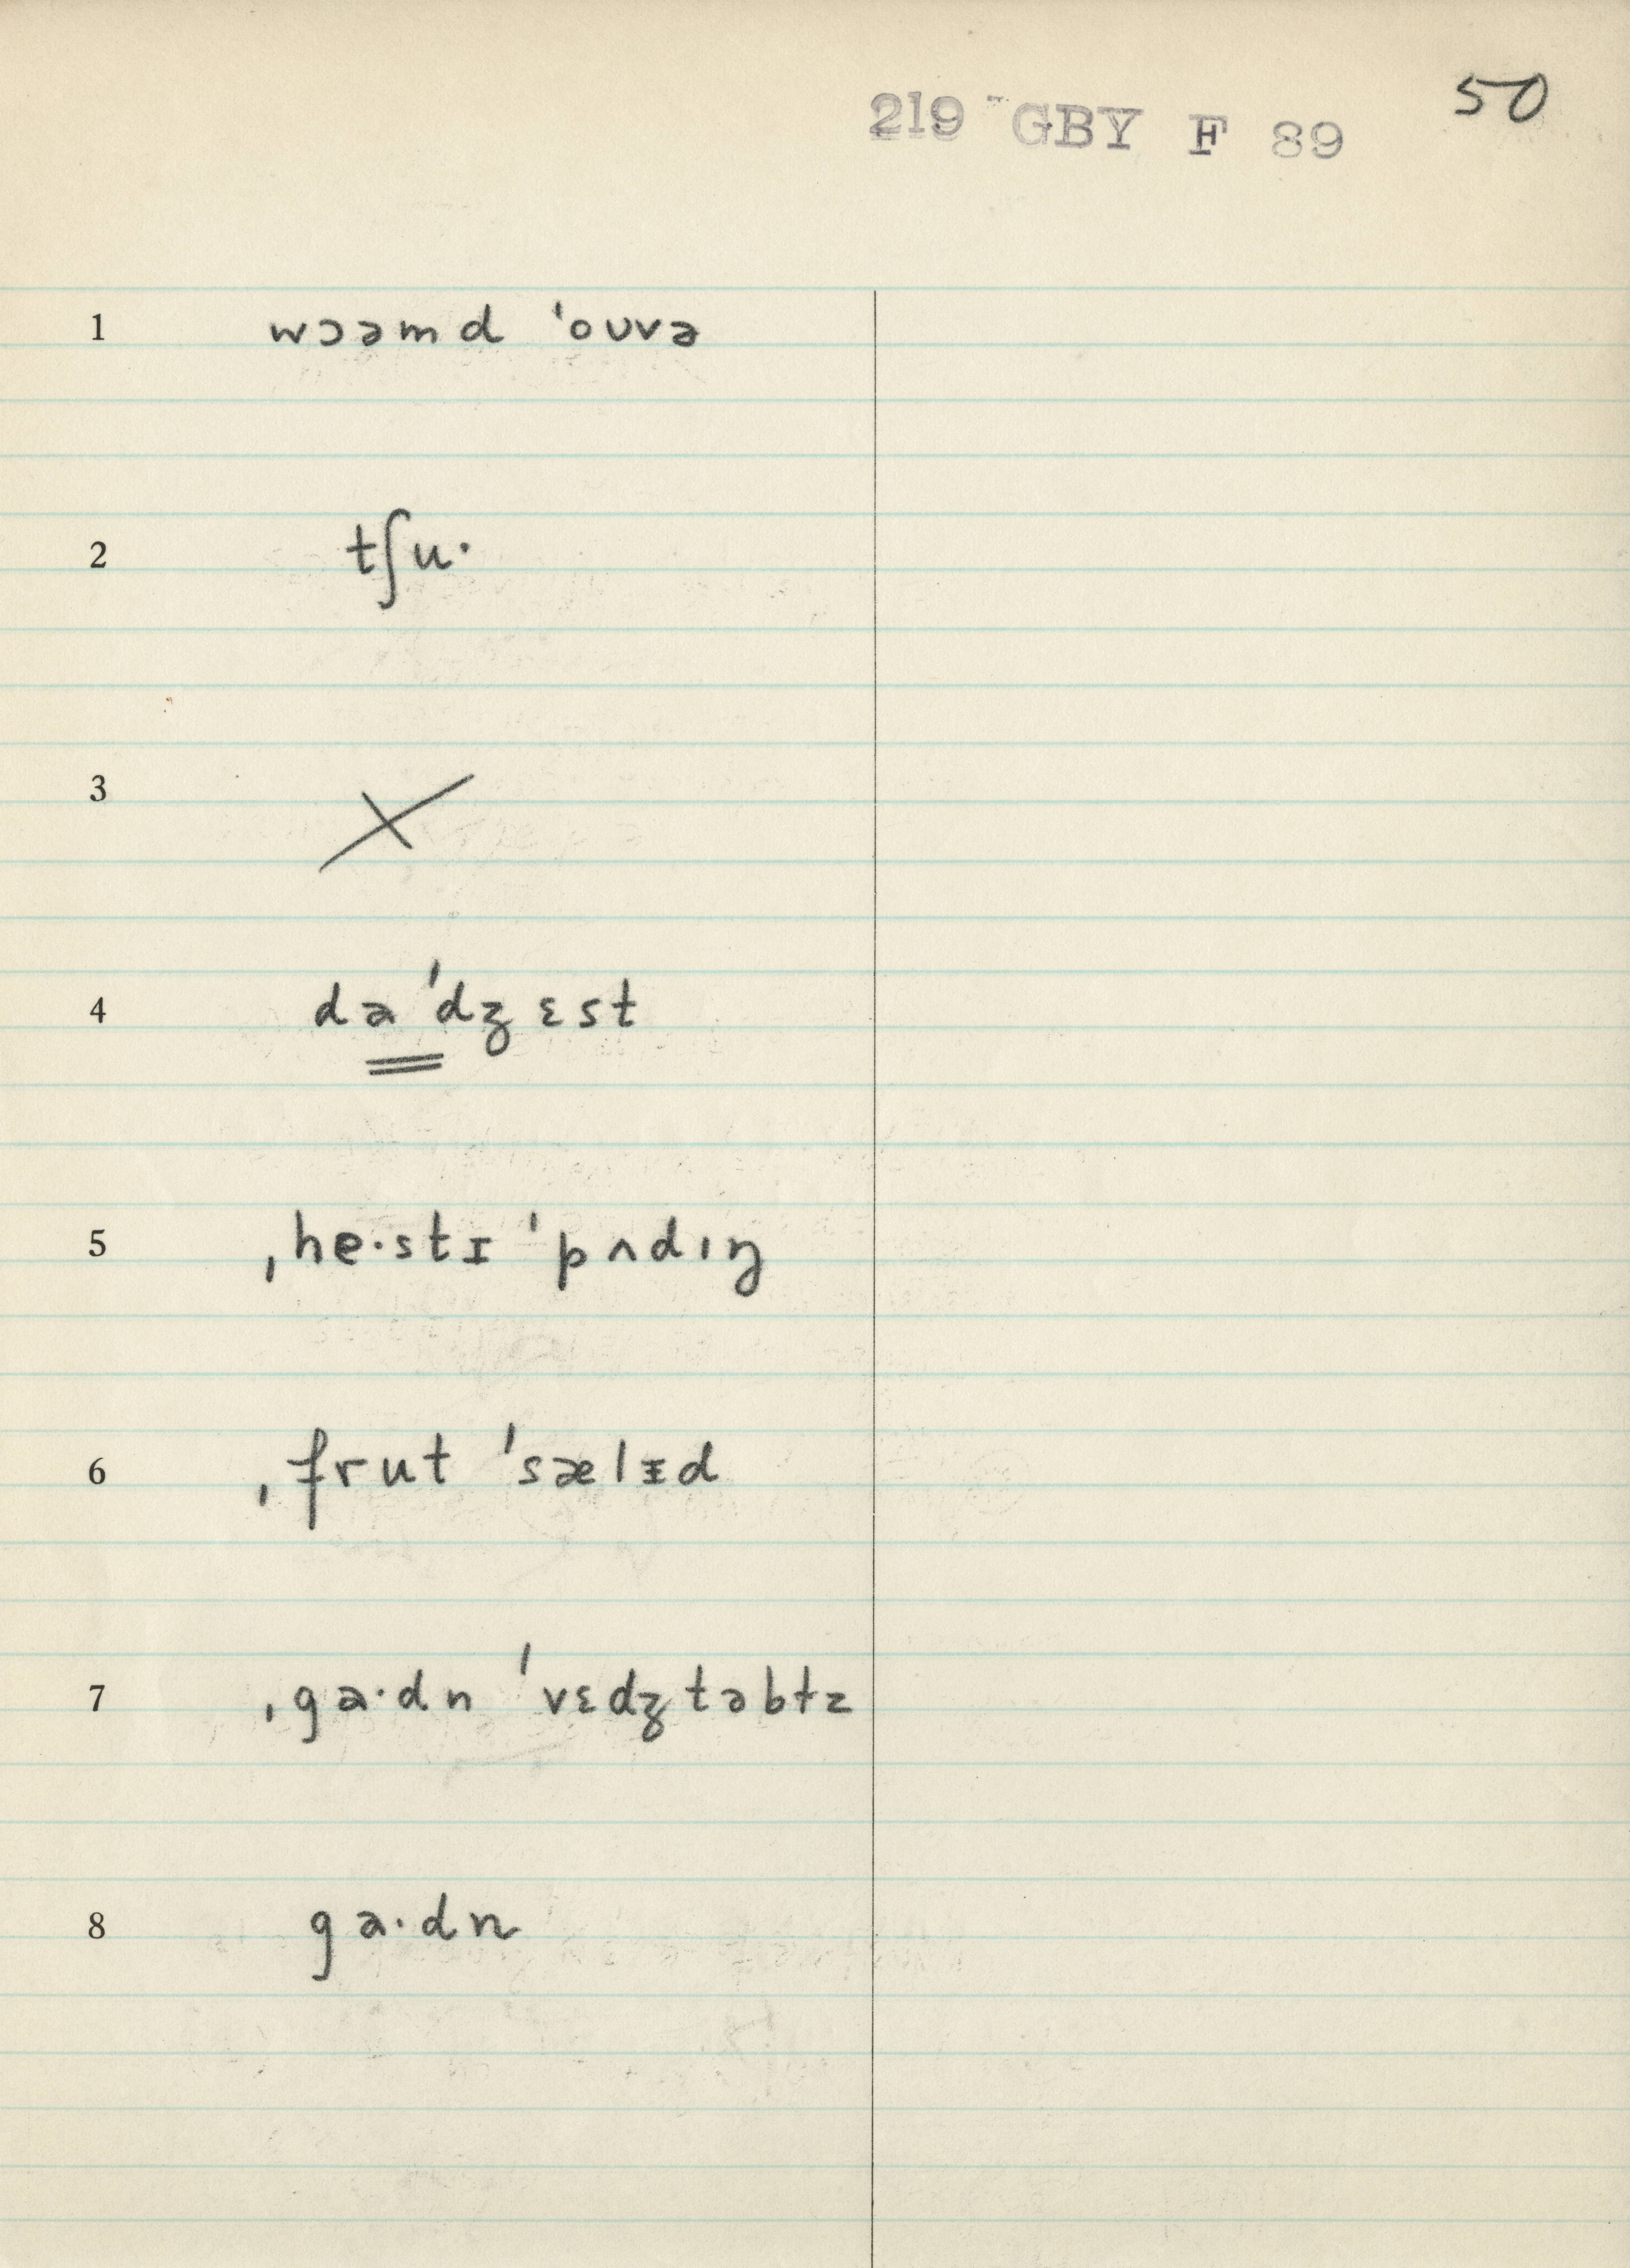 50
219 GBY F 89
1 wɔəmd ˈoʊvə
2 tʃu·
3 ×
4 dəˈdʒɛst
5 ˌhe·stɪˈpʌdɪŋ
6 ˌfrut ˈsælᵻd
7 ˌga·dn ˈvɛdʒtəbɫz
8 ga·dn